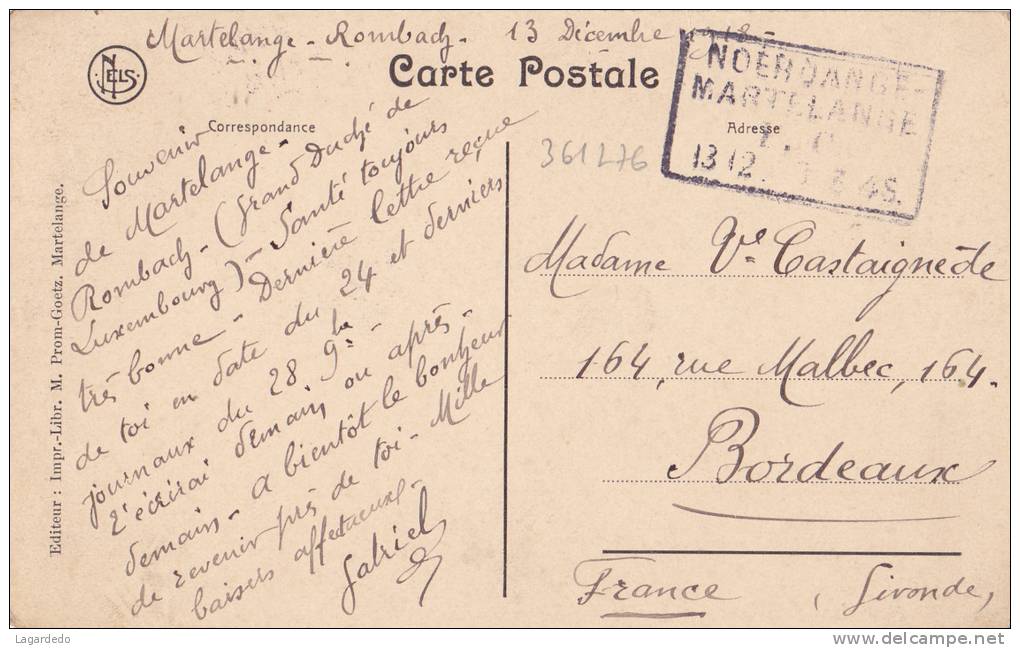 Martelange - Rombach - 13 Décembre 1918 -
NELS
Carte Postale
Correspondance
Adresse
NOERDANGE-
MARTELANGE
13 12
45.
361276
Souvenir
de Martelange -
Rombach - (Grand Duché de
Luxembourg) - Santé toujours
très bonne - Dernière lettre reçue
de toi en date du 24 et derniers
journaux du 28 9bre -
T'écrirai demain ou après-
demain - A bientôt le bonheur
de revenir près de toi - Mille
baisers affectueux -
Gabriel
Madame Ve Castaignède
164, rue Malbec, 164.
Bordeaux
France (Gironde)
Editeur : Impr.-Libr. M. Prom-Goetz. Martelange.
Lagardedo
delcampe.net